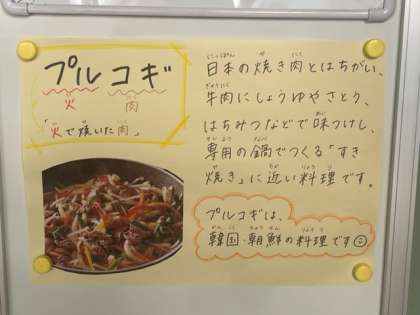 プルコギ
火 肉
「火で焼いた肉」
日本の焼き肉とはちがい、
牛肉にしょうゆやさとう、
はちみつなどで味つけし、
専用の鍋でつくる「すき
焼き」に近い料理です。
プルコギは、
韓国・朝鮮の料理です